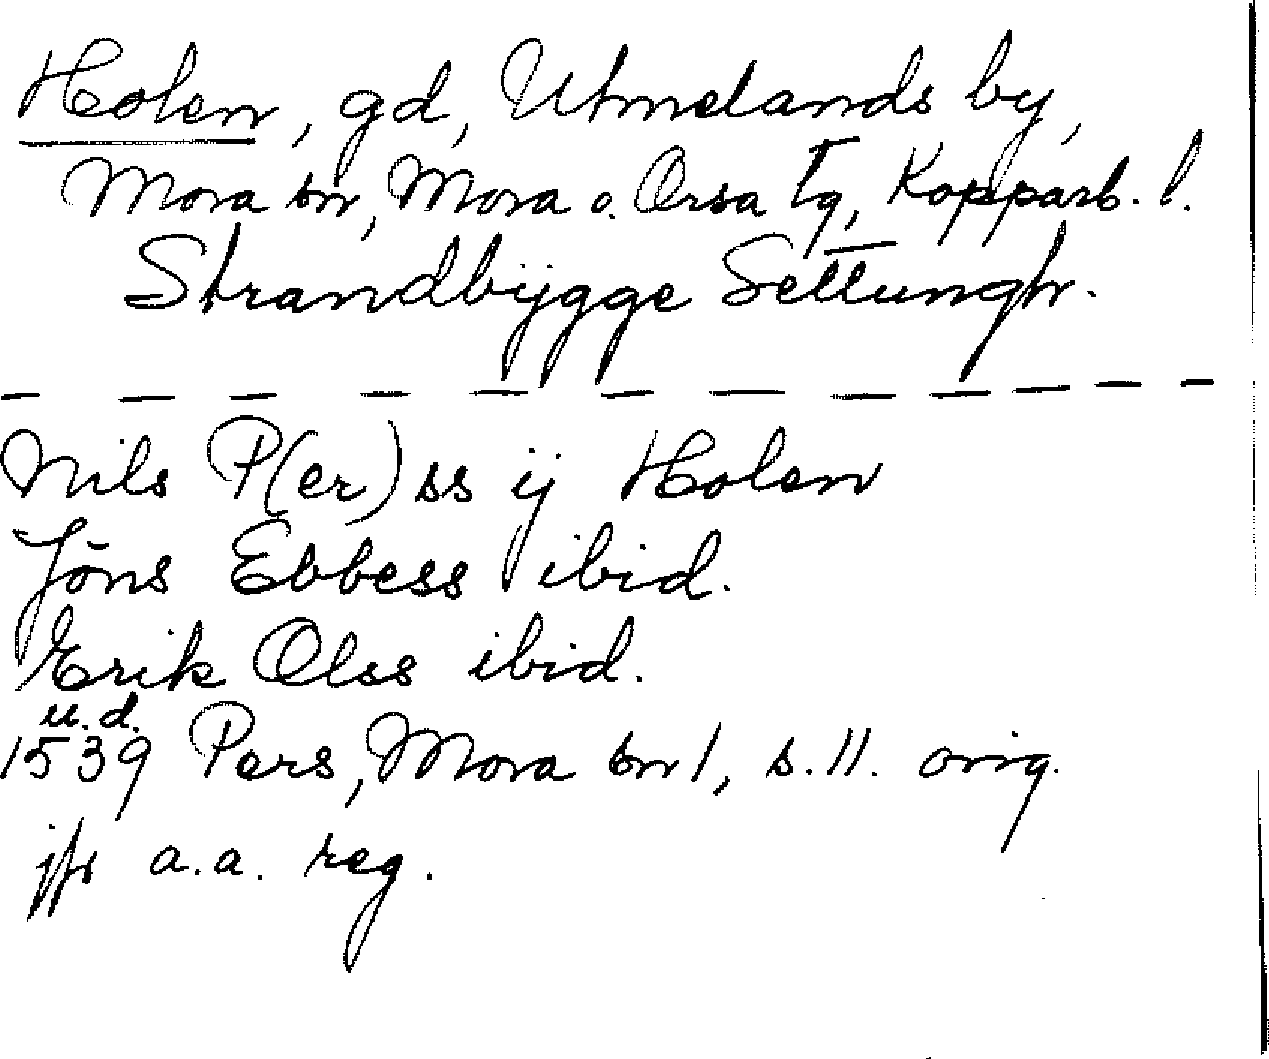 Holen, gd, Utmelands by,
Mora sn, Mora o. Orsa tg, Kopparb. l.
Strandbÿgge Settungh.
Nils P(er)ss ij Holen
Jöns Ebbess ibid.
Erik Olss ibid.
u.d.
1539 Pers, Mora sn 1, s. 11. orig.
jfr a.a. reg.